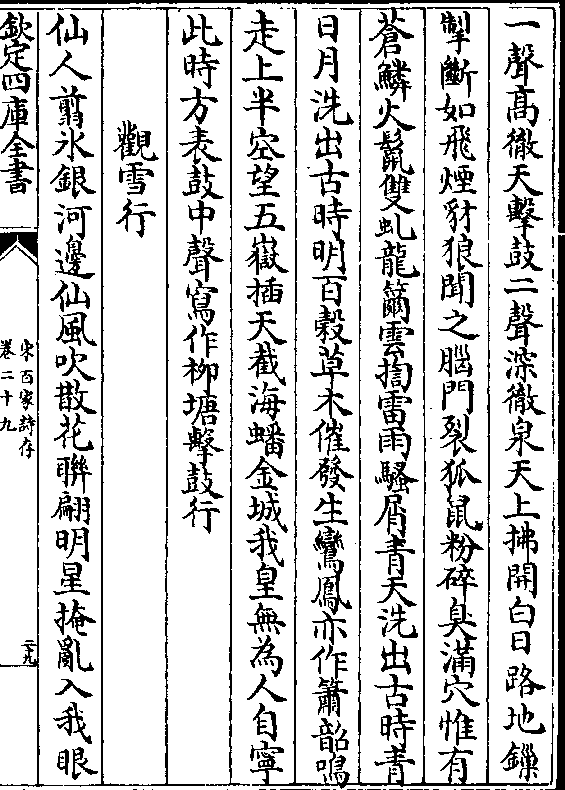 一聲高徹天擊鼓二聲深徹泉天上拂開白日路地鏁
掣斷如飛煙豺狼聞之腦門裂狐鼠粉碎臭滿穴惟有
蒼鱗火鬛雙虬龍籋雲搯雷雨騷屑青天洗出古時青
日月洗出古時明百榖草木催發生鸞鳳亦作簫韶鳴
走上半空望五嶽插天截海蟠金城我皇無為人自寧
此時方表鼓中聲寫作柳塘擊鼓行
觀雪行
仙人翦氷銀河邊仙風吹散花聯翩明星掩亂入我眼
欽定四庫全書
宋百家詩存
卷二十九
二九